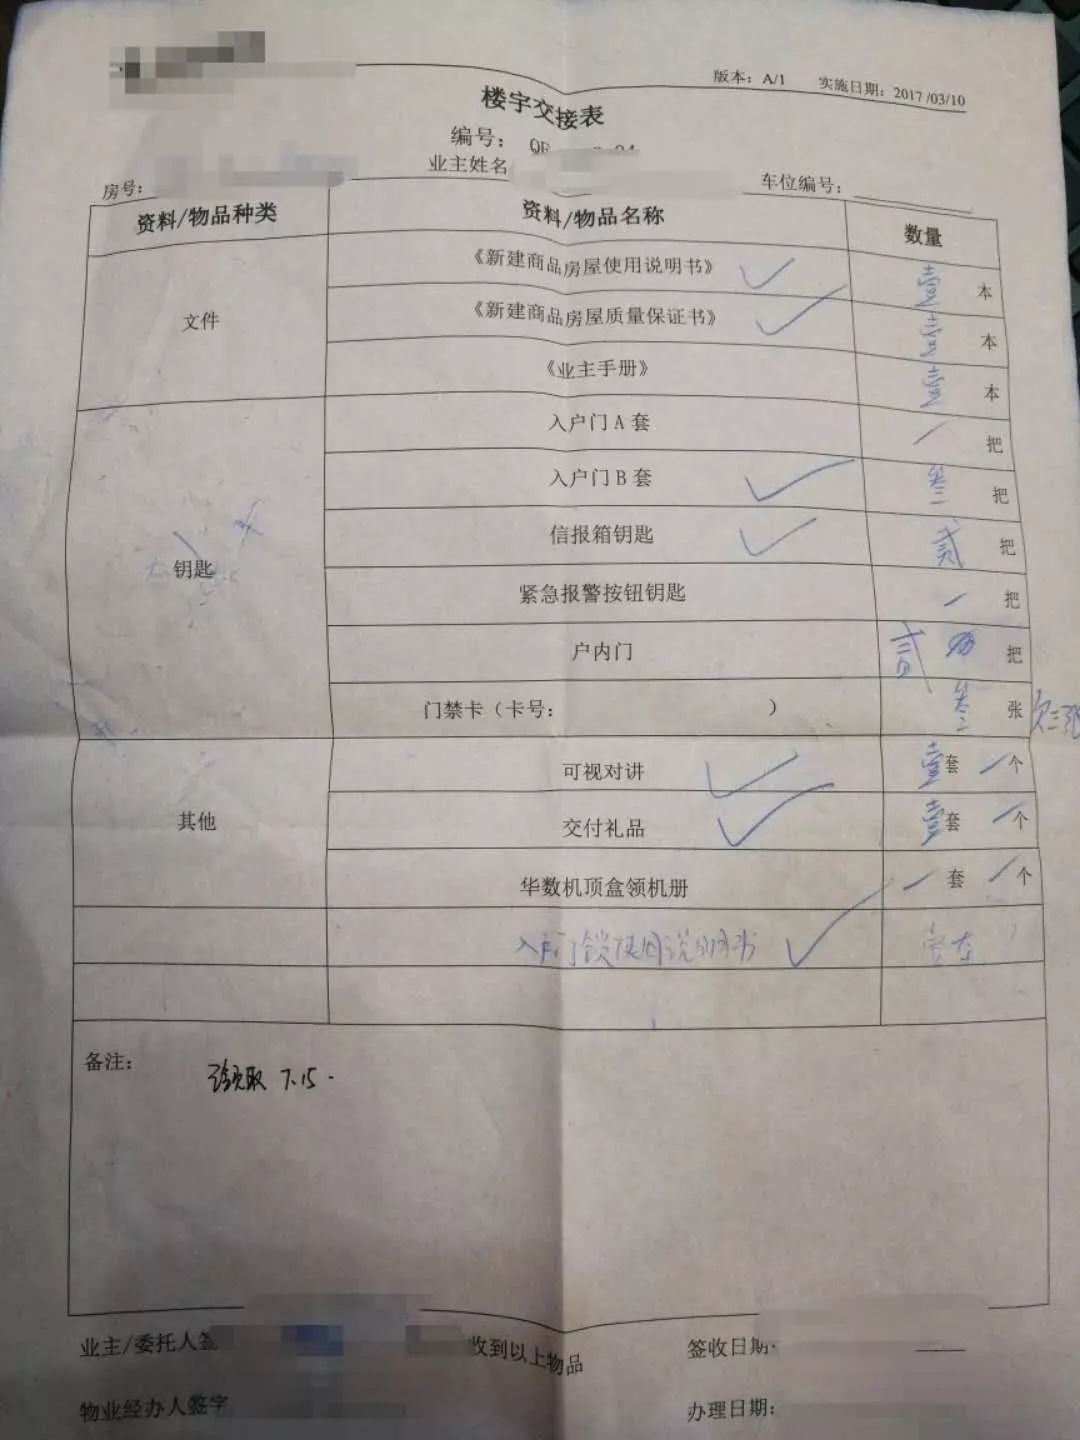 版本：A/1 实施日期：2017/03/10
楼宇交接表
编号：
业主姓名
房号： 车位编号：
资料/物品种类 资料/物品名称 数量
文件 《新建商品房屋使用说明书》 壹 本
《新建商品房屋质量保证书》 壹 本
《业主手册》 壹 本
钥匙 入户门A套 / 把
入户门B套 叁 把
信报箱钥匙 贰 把
紧急报警按钮钥匙 / 把
户内门 贰 把
门禁卡（卡号： ） 叁 张 欠三张
其他 可视对讲 壹套 /个
交付礼品 壹套 /个
华数机顶盒领机册 /套 /个
入户门锁使用说明书 壹本
备注： 领取 7.15.
业主/委托人签 收到以上物品 签收日期:
物业经办人签字 办理日期：